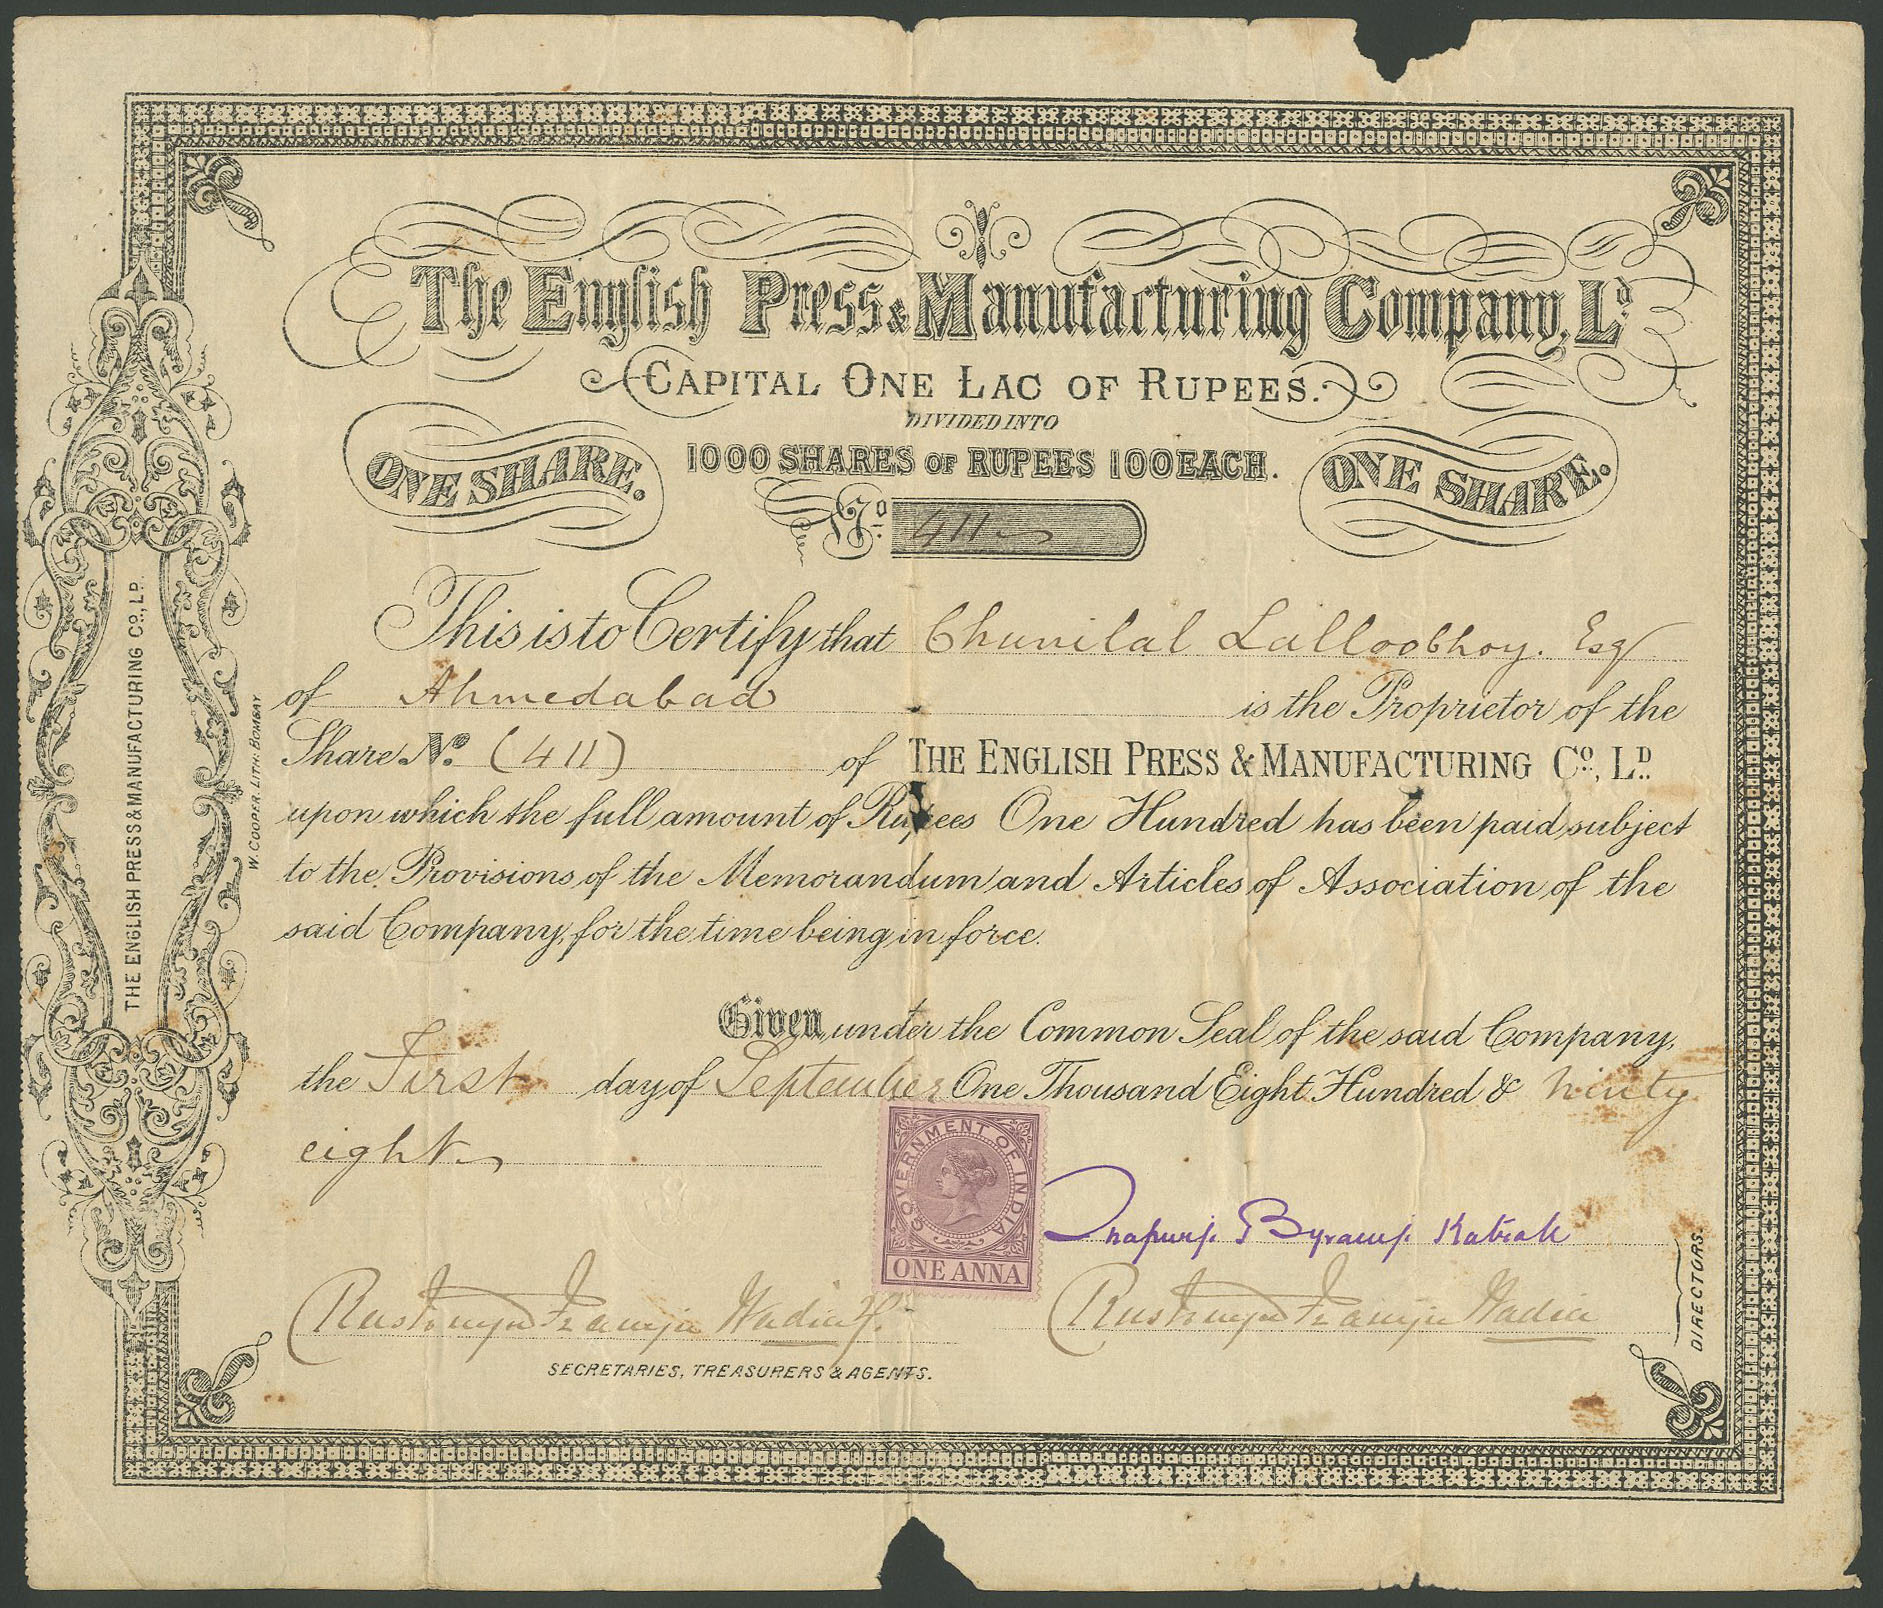 The English Press & Manufacturing Company, Ld.
CAPITAL ONE LAC OF RUPEES.
DIVIDED INTO
1000 SHARES OF RUPEES 100 EACH.
ONE SHARE.
ONE SHARE.
No. 411
This is to Certify that Chunilal Lalloobhoy. Esq
of Ahmedabad is the Proprietor of the
Share No. (411) of THE ENGLISH PRESS & MANUFACTURING Co., LD.
upon which the full amount of Rupees One Hundred has been paid subject
to the Provisions of the Memorandum and Articles of Association of the
said Company, for the time being in force.
Given under the Common Seal of the said Company,
the First day of September One Thousand Eight Hundred & ninety
eight
GOVERNMENT OF INDIA
ONE ANNA
Byramji Katrak
Rustomji Framji Wadia
Rustomji Framji Wadia
SECRETARIES, TREASURERS & AGENTS.
DIRECTORS.
THE ENGLISH PRESS & MANUFACTURING Co., LD.
W. COOPER. LITH: BOMBAY